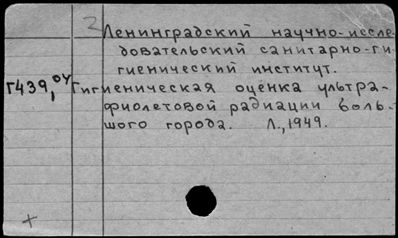 2
Ленинградский научно-иссле-
довательский санитарно-ги-
гиенический институт.
Г439,04 Гигиеническая оценка ультра-
фиолетовой радиации боль-
шого города. Л., 1949.
+